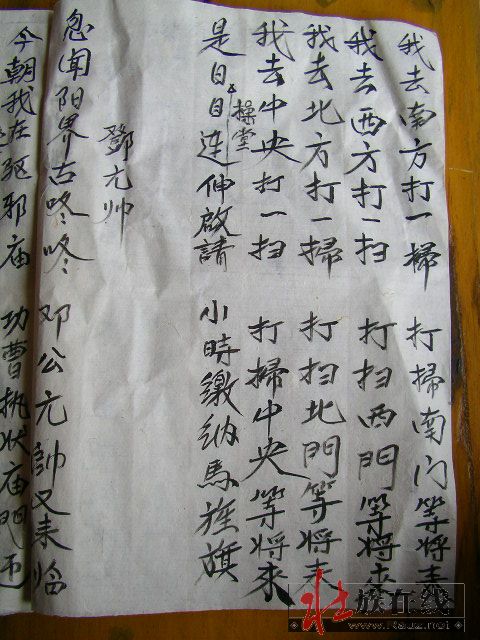 我去南方打一掃 打掃南门等将来
我去西方打一扫 打扫西門等将來
我去北方打一掃 打扫北門等将来
我去中央打一扫 打掃中央等将來
是日目連伸啟請 小時繳纳馬旗
操堂
鄧元帅
忽闻阳界古咚咚 邓公元帥又来临
今朝我在驱邪庙 功曹执状庙門
壮族在线